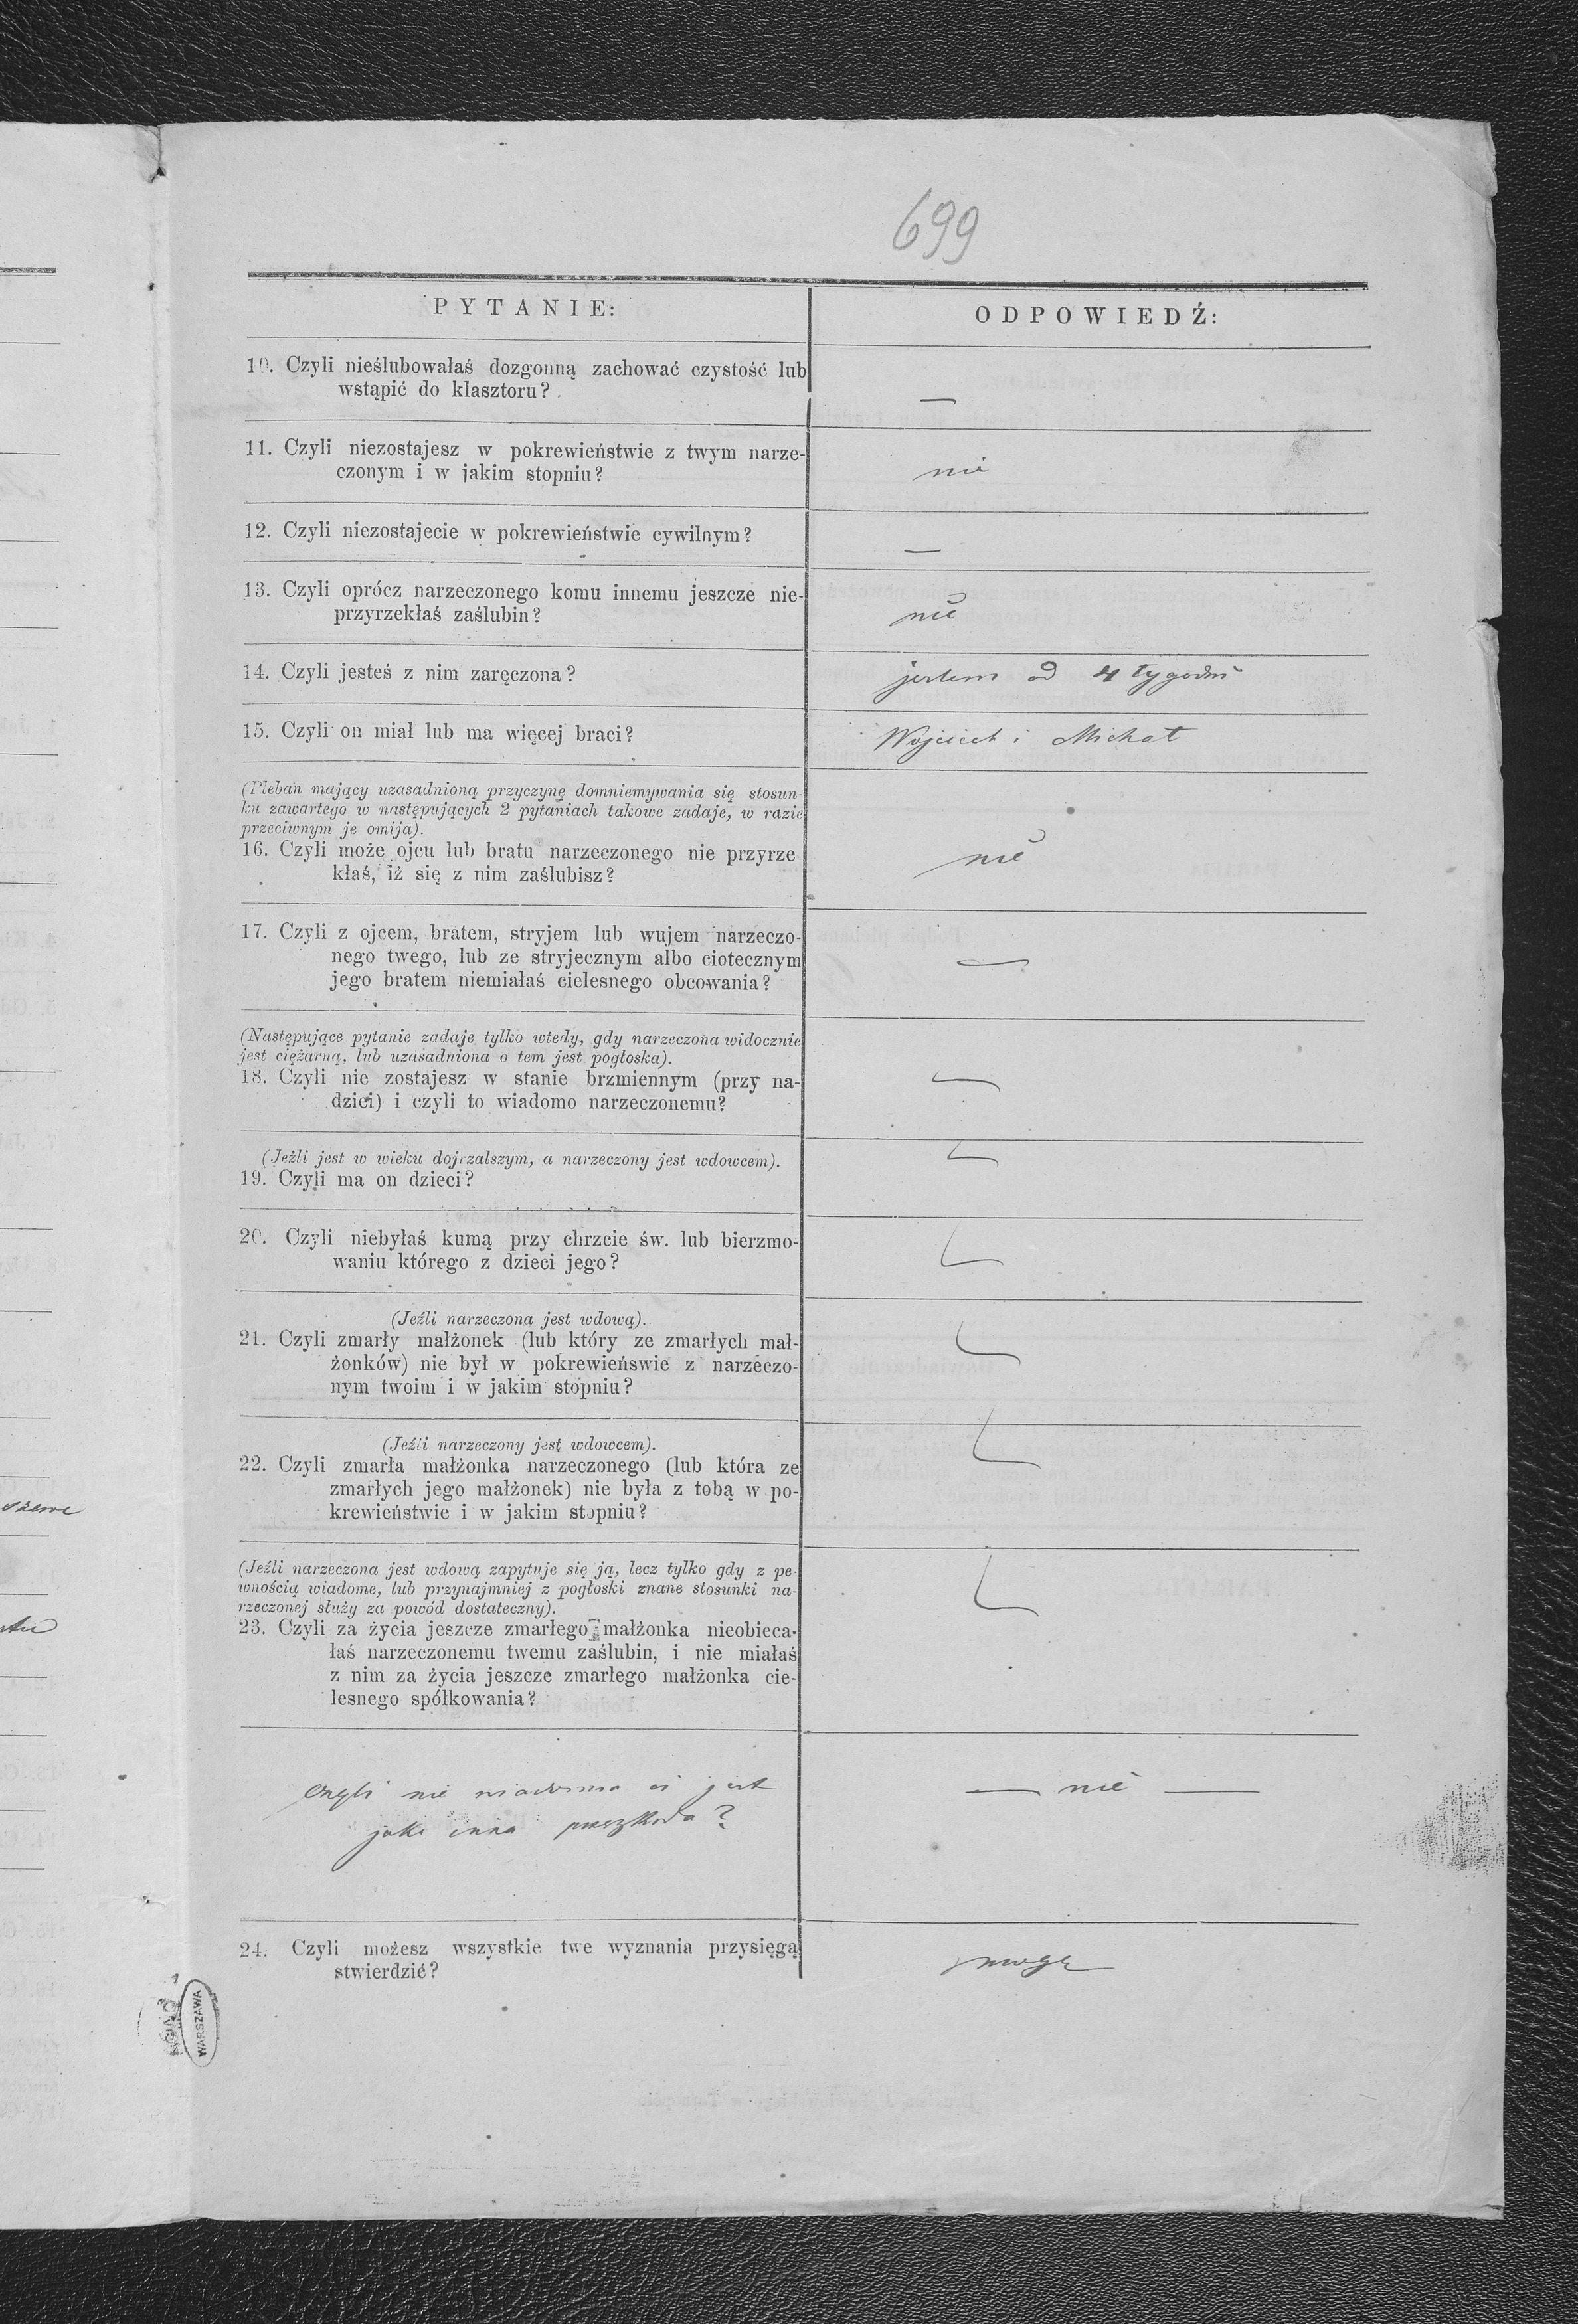 699
PYTANIE:
ODPOWIEDŹ:
10. Czyli nieślubowałaś dozgonną zachować czystość lub
wstąpić do klasztoru?
—
11. Czyli niezostajesz w pokrewieństwie z twym narze-
czonym i w jakim stopniu?
nie
12. Czyli niezostajecie w pokrewieństwie cywilnym?
—
13. Czyli oprócz narzeczonego komu innemu jeszcze nie-
przyrzekłaś zaślubin?
nie
14. Czyli jesteś z nim zaręczona?
jestem od 4 tygodni
15. Czyli on miał lub ma więcej braci?
Wojciech i Michał
(Pleban mający uzasadnioną przyczynę domniemywania się stosun-
ku zawartego w następujących 2 pytaniach takowe zadaje, w razie
przeciwnym je omija).
16. Czyli może ojcu lub bratu narzeczonego nie przyrze
kłaś, iż się z nim zaślubisz?
nie
17. Czyli z ojcem, bratem, stryjem lub wujem narzeczo-
nego twego, lub ze stryjecznym albo ciotecznym
jego bratem niemiałaś cielesnego obcowania?
—
(Następujące pytanie zadaje tylko wtedy, gdy narzeczona widocznie
jest ciężarną, lub uzasadniona o tem jest pogłoska).
18. Czyli nie zostajesz w stanie brzmiennym (przy na-
dziei) i czyli to wiadomo narzeczonemu?
(Jeżli jest w wieku dojrzalszym, a narzeczony jest wdowcem).
19. Czyli ma on dzieci?
20. Czyli niebyłaś kumą przy chrzcie św. lub bierzmo-
waniu którego z dzieci jego?
(Jeźli narzeczona jest wdową).
21. Czyli zmarły małżonek (lub który ze zmarłych mał-
żonków) nie był w pokrewieńswie z narzeczo-
nym twoim i w jakim stopniu?
(Jeźli narzeczony jest wdowcem).
22. Czyli zmarła małżonka narzeczonego (lub która ze
zmarłych jego małżonek) nie była z tobą w po-
krewieństwie i w jakim stopniu?
(Jeźli narzeczona jest wdową zapytuje się ją, lecz tylko gdy z pe-
wnością wiadome, lub przynajmniej z pogłoski znane stosunki na-
rzeczonej służy za powód dostateczny).
23. Czyli za życia jeszcze zmarłego małżonka nieobieca-
łaś narzeczonemu twemu zaślubin, i nie miałaś
z nim za życia jeszcze zmarłego małżonka cie-
lesnego spółkowania?
Czyli nie wiadoma ci jest
jaka inna przeszkoda?
— nie —
24. Czyli możesz wszystkie twe wyznania przysięgą
stwierdzić?
mogę
WARSZAWA